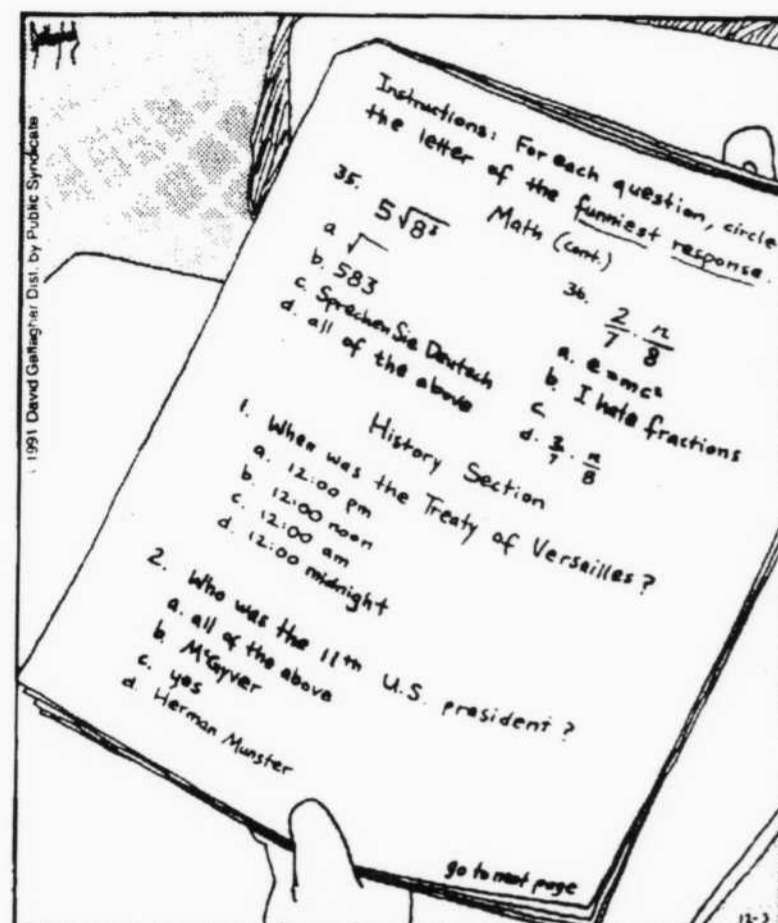 1991 David Gallagher Dist. by Public Syndicate
Instructions: For each question, circle
the letter of the funniest response.
Math (cont.)
35.
5√8³
a √
b. 583
c. Sprechen Sie Deutsch
d. all of the above
36.
2/7 · n/8
a. e=mc²
b. I hate fractions
c
d. 2/7 · n/8
History Section
1. When was the Treaty of Versailles?
a. 12:00 pm
b. 12:00 noon
c. 12:00 am
d. 12:00 midnight
2. Who was the 11th U.S. president?
a. all of the above
b. McGyver
c. yes
d. Herman Munster
go to next page
12-3